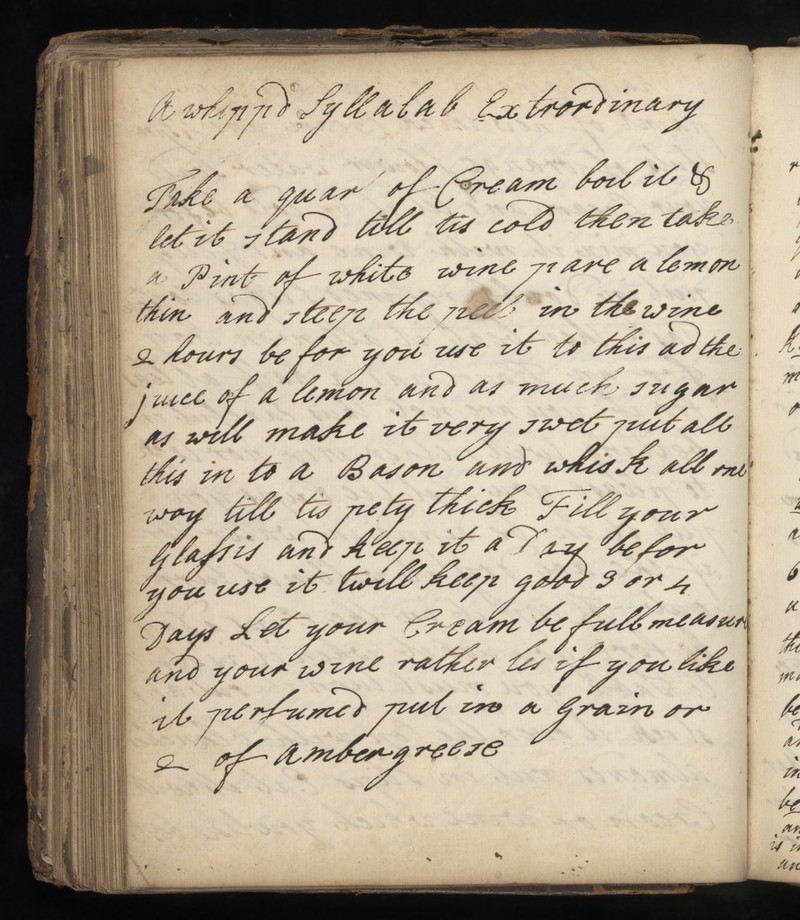 A whippd Syllalab Extrordinary
Take a quar of Cream boil it &
let it stand till tis cold then take
a Pint of white wine pare a lemon
thin and steep the peel in the wine
2 hours befor you use it to this ad the
juice of a lemon and as much sugar
as will make it very swet put all
this in to a Bason and whisk all one
way till tis pety thick Fill your
Glassis and keep it a Day befor
you use it twill keep good 3 or 4
Days Let your Cream be full measur
and your wine rather les if you like
it perfumed put in a Grain or
2 of Ambergreese